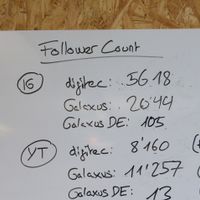 Follower Count
IG digitec: 5618
Galaxus: 2044
Galaxus DE: 105
YT digitec: 8'160
Galaxus: 11'257
Galaxus DE: 13